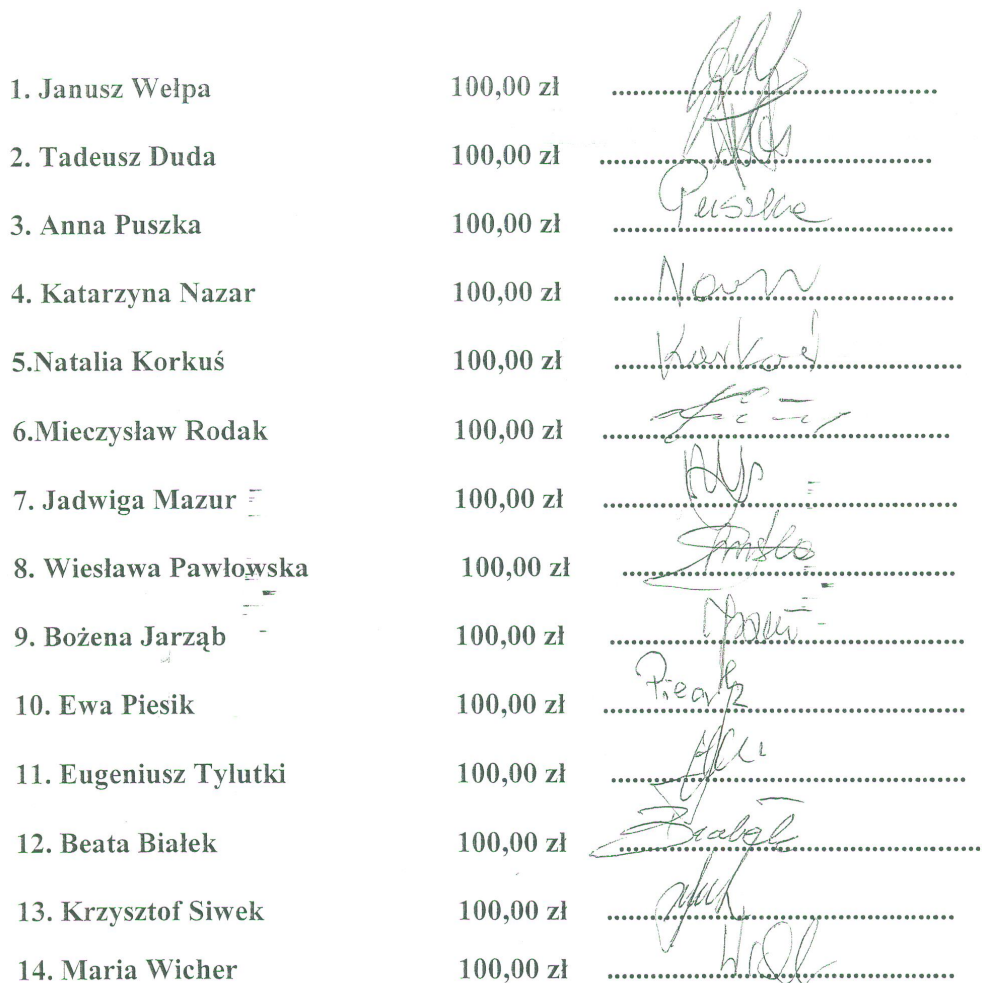 1. Janusz Wełpa 100,00 zł ........................................
2. Tadeusz Duda 100,00 zł ........................................
3. Anna Puszka 100,00 zł ........................................ Puszka
4. Katarzyna Nazar 100,00 zł ........................................
5.Natalia Korkuś 100,00 zł ........................................
6.Mieczysław Rodak 100,00 zł ........................................
7. Jadwiga Mazur 100,00 zł ........................................
8. Wiesława Pawłowska 100,00 zł ........................................
9. Bożena Jarząb 100,00 zł ........................................
10. Ewa Piesik 100,00 zł ........................................
11. Eugeniusz Tylutki 100,00 zł ........................................
12. Beata Białek 100,00 zł ........................................
13. Krzysztof Siwek 100,00 zł ........................................
14. Maria Wicher 100,00 zł ........................................